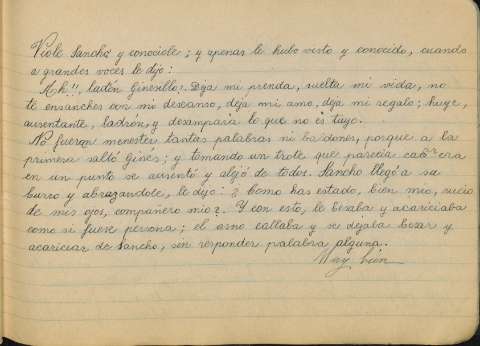 Viole Sancho y conociole; y apenas le hubo visto y conocido, cuando
a grandes voces le dijo:
Ah!!, ladón Ginesillo!. Deja mi prenda, suelta mi vida, no
te ensanches con mi descanso, deja mi amo, deja mi regalo; huye,
ausentante, ladrón, y desampara lo que no es tuyo.
No fueron menester tantas palabras ni baldones, porque a la
primera saltó Ginés; y tomando un trote que parecía carrera
en un punto se ausentó y alejó de todos. Sancho llegó a su
burro y abrazandole, le dijo: ¿Como has estado, bien mio, rucio
de mis ojos, compañero mio?. Y con esto, le besaba y acariciaba
como si fuese persona; el asno callaba y se dejaba besar y
acariciar de Sancho, sin responder palabra alguna.
Muy bien